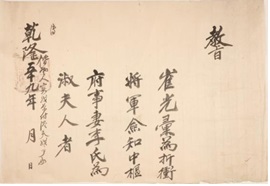 教旨
崔光彙爲折衝
將軍僉知中樞
府事妻李氏爲
淑夫人者
乾隆五十九年 月 日